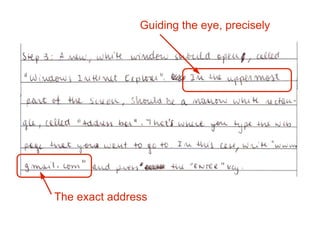 Guiding the eye, precisely
Step 3: A new, white window should open, called
"Windows Internet Explorer". In the uppermost
part of the screen, should be a narrow white rectan-
gle, called "Address bar". That's where you type the web
page that you want to go to. In this case, write "www.
gmail.com" and press the "ENTER" key.
The exact address